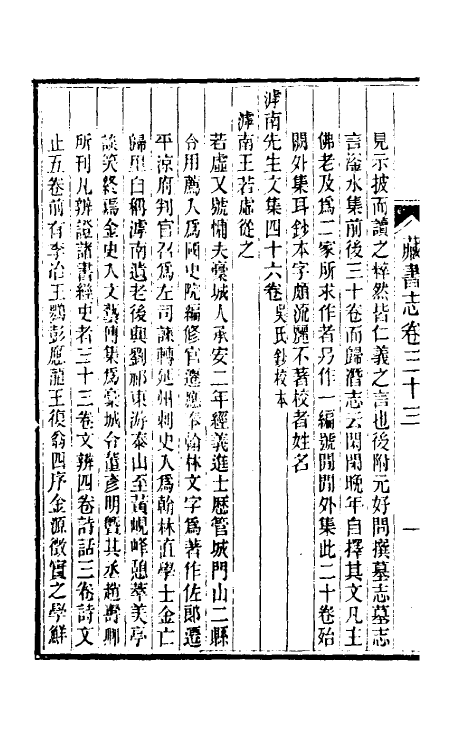 藏書志卷三十三
一
見示披而讀之粹然皆仁義之言也後附元好問撰墓志墓志
言滏水集前後三十卷而歸潛志云閑閑晚年自擇其文凡主
佛老及爲二家所求作者另作一編號閒閒外集此二十卷殆
闕外集耳鈔本字頗流麗不著校者姓名
滹南先生文集四十六卷吳氏鈔校本
滹南王若虛從之
若虛又號慵夫藁城人承安二年經義進士歷管城門山二縣
令用薦入爲國史院編修官遷應奉翰林文字爲著作佐郎遷
平涼府判官召爲左司諫轉延州刺史入爲翰林直學士金亡
歸里自稱滹南遺老後與劉祁東游泰山至黃峴峰憩萃美亭
談笑終焉金史入文藝傳集爲藁城令董彥明暨其丞趙壽卿
所刊凡辨證諸書經史者三十三卷文辨四卷詩話三卷詩文
止五卷前有李冶王鶚彭應龍王復翁四序金源徵實之學鮮